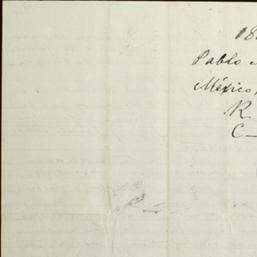 18
Pablo
México,
R
C—